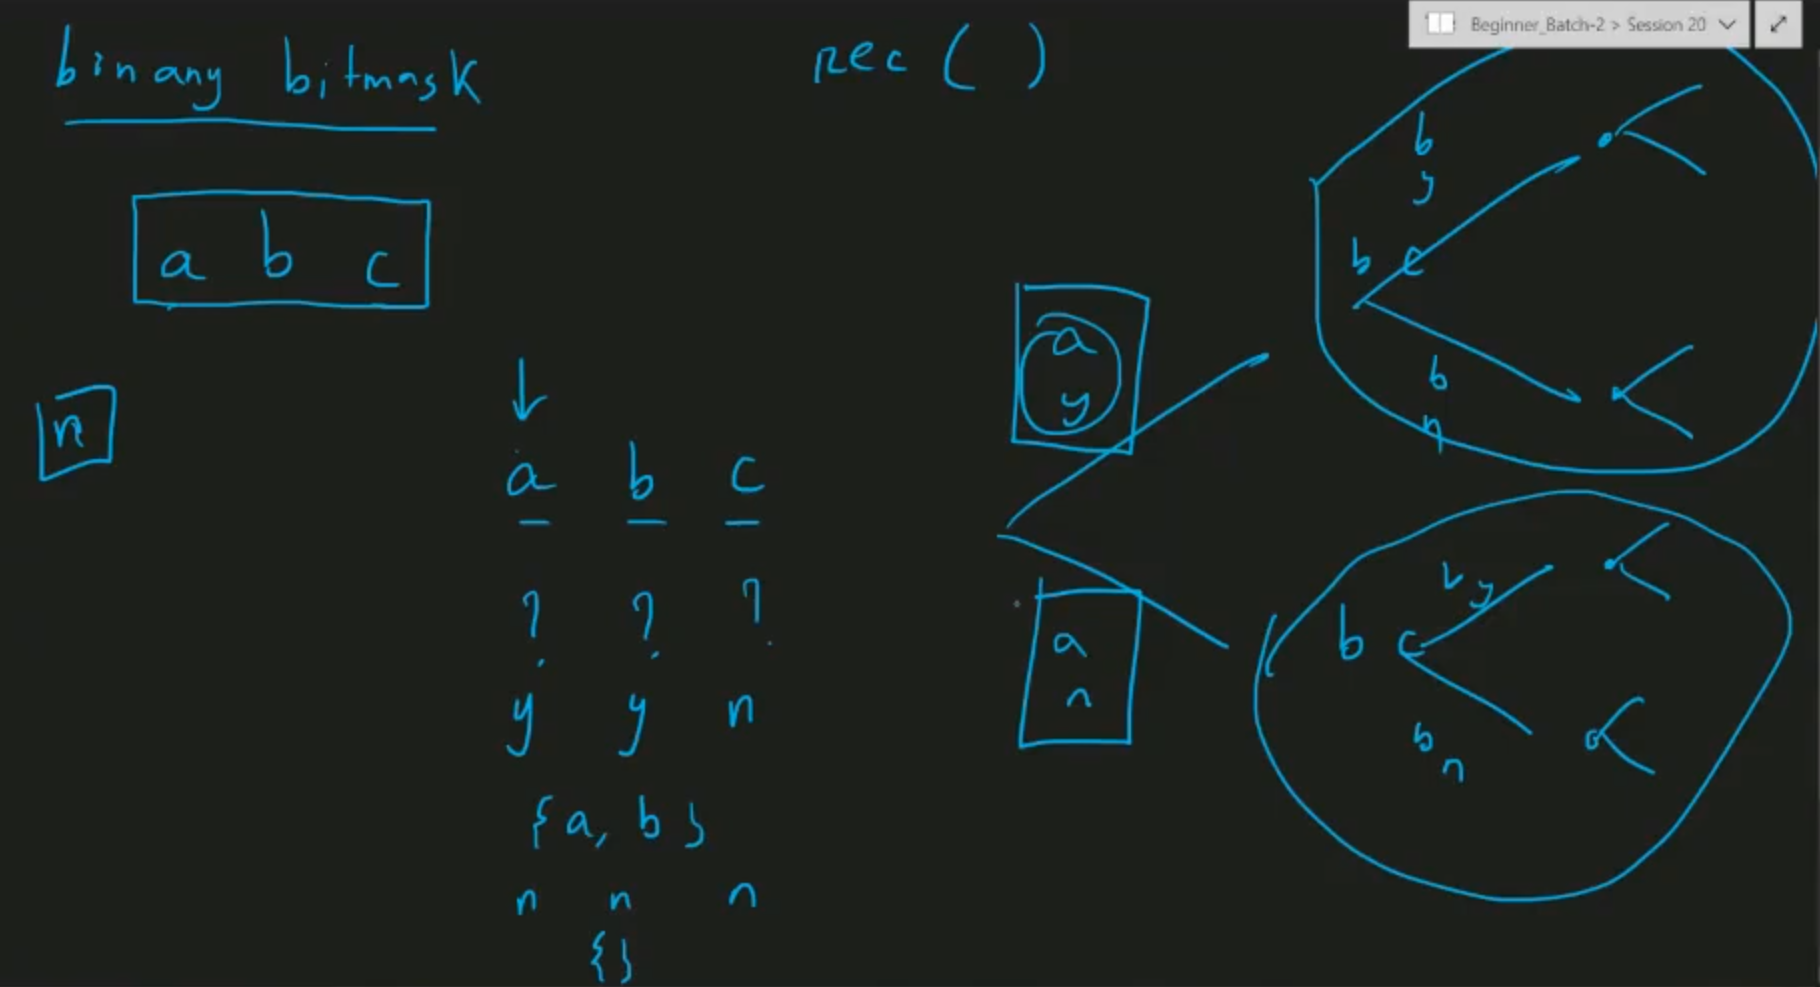 Beginner_Batch-2 > Session 20
binany bitmask
rec ( )
a b c
n
a b c
? ? ?
y y n
{a, b}
n n n
{}
a
y
a
n
b
y
b c
b
n
b y
b c
b
n